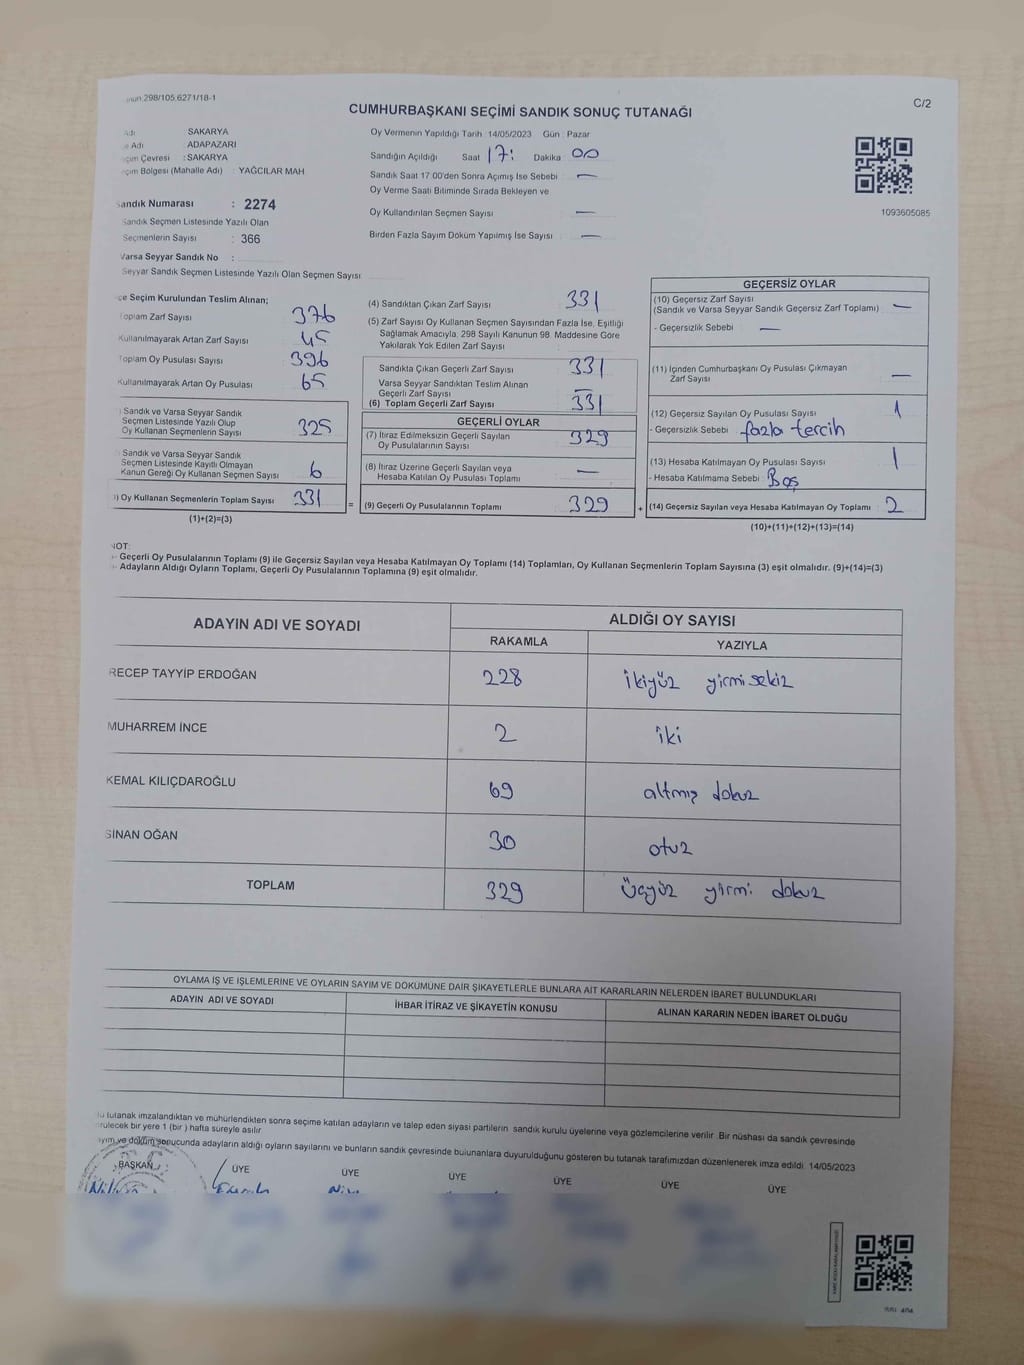 298/105.6271/18-1
C/2
CUMHURBAŞKANI SEÇİMİ SANDIK SONUÇ TUTANAĞI
SAKARYA
Adı : ADAPAZARI
Çevresi : SAKARYA
Bölgesi (Mahalle Adı) : YAĞCILAR MAH
Sandık Numarası : 2274
Sandık Seçmen Listesinde Yazılı Olan
Seçmenlerin Sayısı : 366
Varsa Seyyar Sandık No :
Seyyar Sandık Seçmen Listesinde Yazılı Olan Seçmen Sayısı
Oy Vermenin Yapıldığı Tarih : 14/05/2023 Gün : Pazar
Sandığın Açıldığı Saat 17: Dakika 00
Sandık Saat 17.00'den Sonra Açımış İse Sebebi —
Oy Verme Saati Bitiminde Sırada Bekleyen ve
Oy Kullandırılan Seçmen Sayısı —
Birden Fazla Sayım Döküm Yapılmış İse Sayısı —
1093605085
Seçim Kurulundan Teslim Alınan;
Toplam Zarf Sayısı 376
Kullanılmayarak Artan Zarf Sayısı 45
Toplam Oy Pusulası Sayısı 396
Kullanılmayarak Artan Oy Pusulası 65
Sandık ve Varsa Seyyar Sandık
Seçmen Listesinde Yazılı Olup
Oy Kullanan Seçmenlerin Sayısı 325
Sandık ve Varsa Seyyar Sandık
Seçmen Listesinde Kayıtlı Olmayan
Kanun Gereği Oy Kullanan Seçmen Sayısı 6
) Oy Kullanan Seçmenlerin Toplam Sayısı 331 =
(1)+(2)=(3)
(4) Sandıktan Çıkan Zarf Sayısı 331
(5) Zarf Sayısı Oy Kullanan Seçmen Sayısından Fazla İse, Eşitliği
Sağlamak Amacıyla, 298 Sayılı Kanunun 98. Maddesine Göre
Yakılarak Yok Edilen Zarf Sayısı
Sandıkta Çıkan Geçerli Zarf Sayısı 331
Varsa Seyyar Sandıktan Teslim Alınan
Geçerli Zarf Sayısı —
(6) Toplam Geçerli Zarf Sayısı 331
GEÇERLİ OYLAR
(7) İtiraz Edilmeksizin Geçerli Sayılan
Oy Pusulalarının Sayısı 329
(8) İtiraz Üzerine Geçerli Sayılan veya
Hesaba Katılan Oy Pusulası Toplamı —
(9) Geçerli Oy Pusulalarının Toplamı 329 +
GEÇERSİZ OYLAR
(10) Geçersiz Zarf Sayısı
(Sandık ve Varsa Seyyar Sandık Geçersiz Zarf Toplamı) —
- Geçersizlik Sebebi —
(11) İçinden Cumhurbaşkanı Oy Pusulası Çıkmayan
Zarf Sayısı —
(12) Geçersiz Sayılan Oy Pusulası Sayısı 1
- Geçersizlik Sebebi fazla tercih
(13) Hesaba Katılmayan Oy Pusulası Sayısı 1
- Hesaba Katılmama Sebebi Boş
(14) Geçersiz Sayılan veya Hesaba Katılmayan Oy Toplamı 2
(10)+(11)+(12)+(13)=(14)
NOT:
- Geçerli Oy Pusulalarının Toplamı (9) ile Geçersiz Sayılan veya Hesaba Katılmayan Oy Toplamı (14) Toplamları, Oy Kullanan Seçmenlerin Toplam Sayısına (3) eşit olmalıdır. (9)+(14)=(3)
- Adayların Aldığı Oyların Toplamı, Geçerli Oy Pusulalarının Toplamına (9) eşit olmalıdır.
ADAYIN ADI VE SOYADI ALDIĞI OY SAYISI
RAKAMLA YAZIYLA
RECEP TAYYİP ERDOĞAN 228 ikiyüz yirmi sekiz
MUHARREM İNCE 2 iki
KEMAL KILIÇDAROĞLU 69 altmış dokuz
SİNAN OĞAN 30 otuz
TOPLAM 329 üçyüz yirmi dokuz
OYLAMA İŞ VE İŞLEMLERİNE VE OYLARIN SAYIM VE DÖKÜMÜNE DAİR ŞİKAYETLERLE BUNLARA AİT KARARLARIN NELERDEN İBARET BULUNDUKLARI
ADAYIN ADI VE SOYADI İHBAR İTİRAZ VE ŞİKAYETİN KONUSU ALINAN KARARIN NEDEN İBARET OLDUĞU
tutanak imzalandıktan ve mühürlendikten sonra seçime katılan adayların ve talep eden siyasi partilerin sandık kurulu üyelerine veya gözlemcilerine verilir. Bir nüshası da sandık çevresinde
bir yere 1 (bir) hafta süreyle asılır.
ve döküm sonucunda adayların aldığı oyların sayılarını ve bunların sandık çevresinde bulunanlara duyurulduğunu gösteren bu tutanak tarafımızdan düzenlenerek imza edildi. 14/05/2023
BAŞKAN ÜYE ÜYE ÜYE ÜYE ÜYE ÜYE